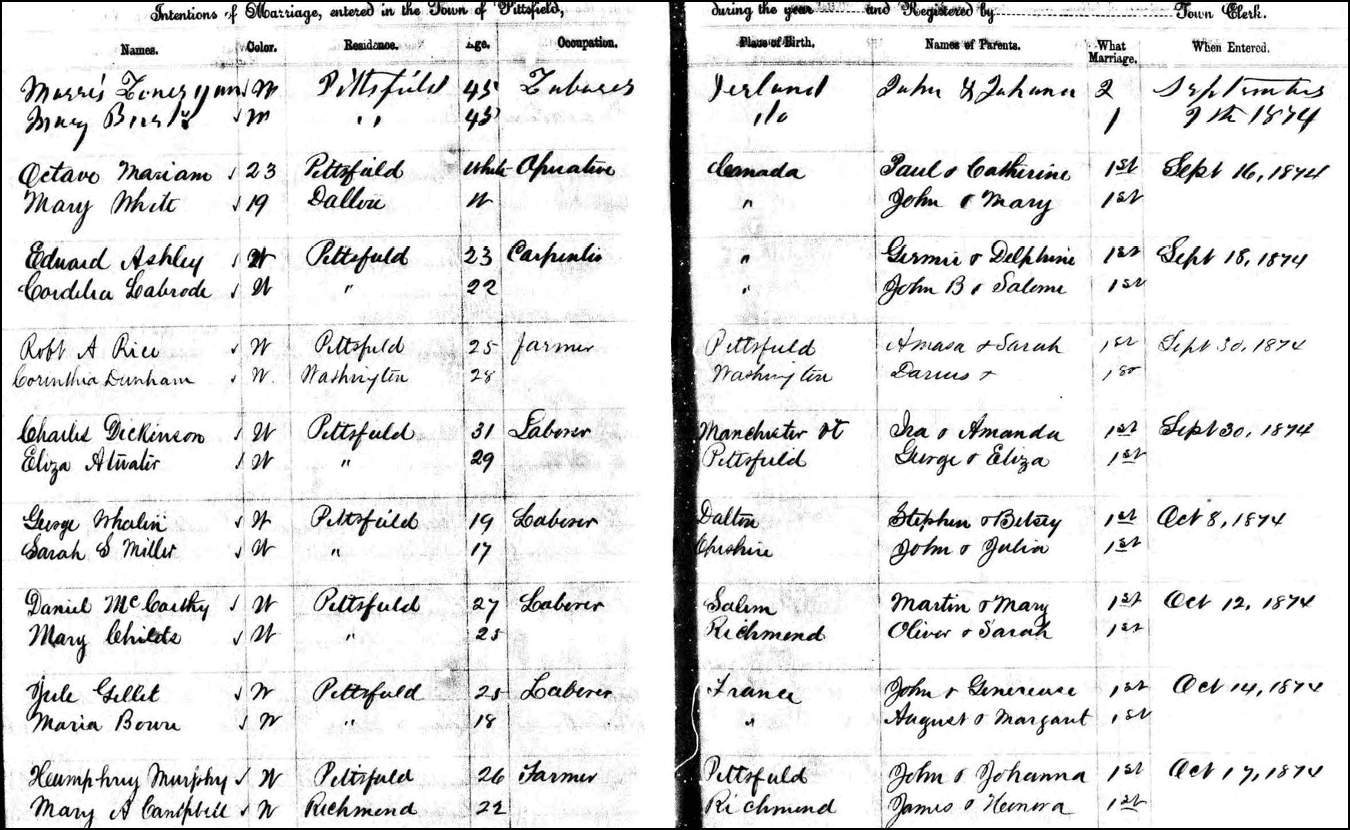 Intentions of Marriage, entered in the Town of Pittsfield, during the year and Registered by Town Clerk.
Names. Color. Residence. Age. Occupation. Place of Birth. Names of Parents. What Marriage. When Entered.
Morris W Pittsfield 45 Laborer Ireland John & Johana 2 September
Mary W " 45 1 9th 1874
Octave Mariam 23 Pittsfield White Operative Canada Paul & Catherine 1st Sept 16, 1874
Mary White 19 Dalton W " John & Mary 1st
Edward Ashley W Pittsfield 23 Carpenter " & Delphine 1st Sept 18, 1874
Cordelia Labrode W " 22 " John B & Salome 1st
Robt A Rice W Pittsfield 25 farmer Pittsfield Amasa & Sarah 1st Sept 30, 1874
Corinthia Dunham W. Washington 28 Washington Darius & 1st
Charles Dickinson W Pittsfield 31 Laborer Manchester Vt Ira & Amanda 1st Sept 30, 1874
Eliza Atwater W " 29 Pittsfield George & Eliza 1st
George Whalin W Pittsfield 19 Laborer Dalton Stephen & Betsey 1st Oct 8, 1874
Sarah S Miller W " 17 Cheshire John & Julia 1st
Daniel McCarthy W Pittsfield 27 Laborer Salem Martin & Mary 1st Oct 12, 1874
Mary Childs W " 25 Richmond Oliver & Sarah 1st
Jule Gillet W Pittsfield 25 Laborer France John & Genereuse 1st Oct 14, 1874
Maria W " 18 " August & Margaret 1st
Humphrey Murphy W Pittsfield 26 Farmer Pittsfield John & Johanna 1st Oct 17, 1874
Mary A Campbell W Richmond 22 Richmond James & 1st